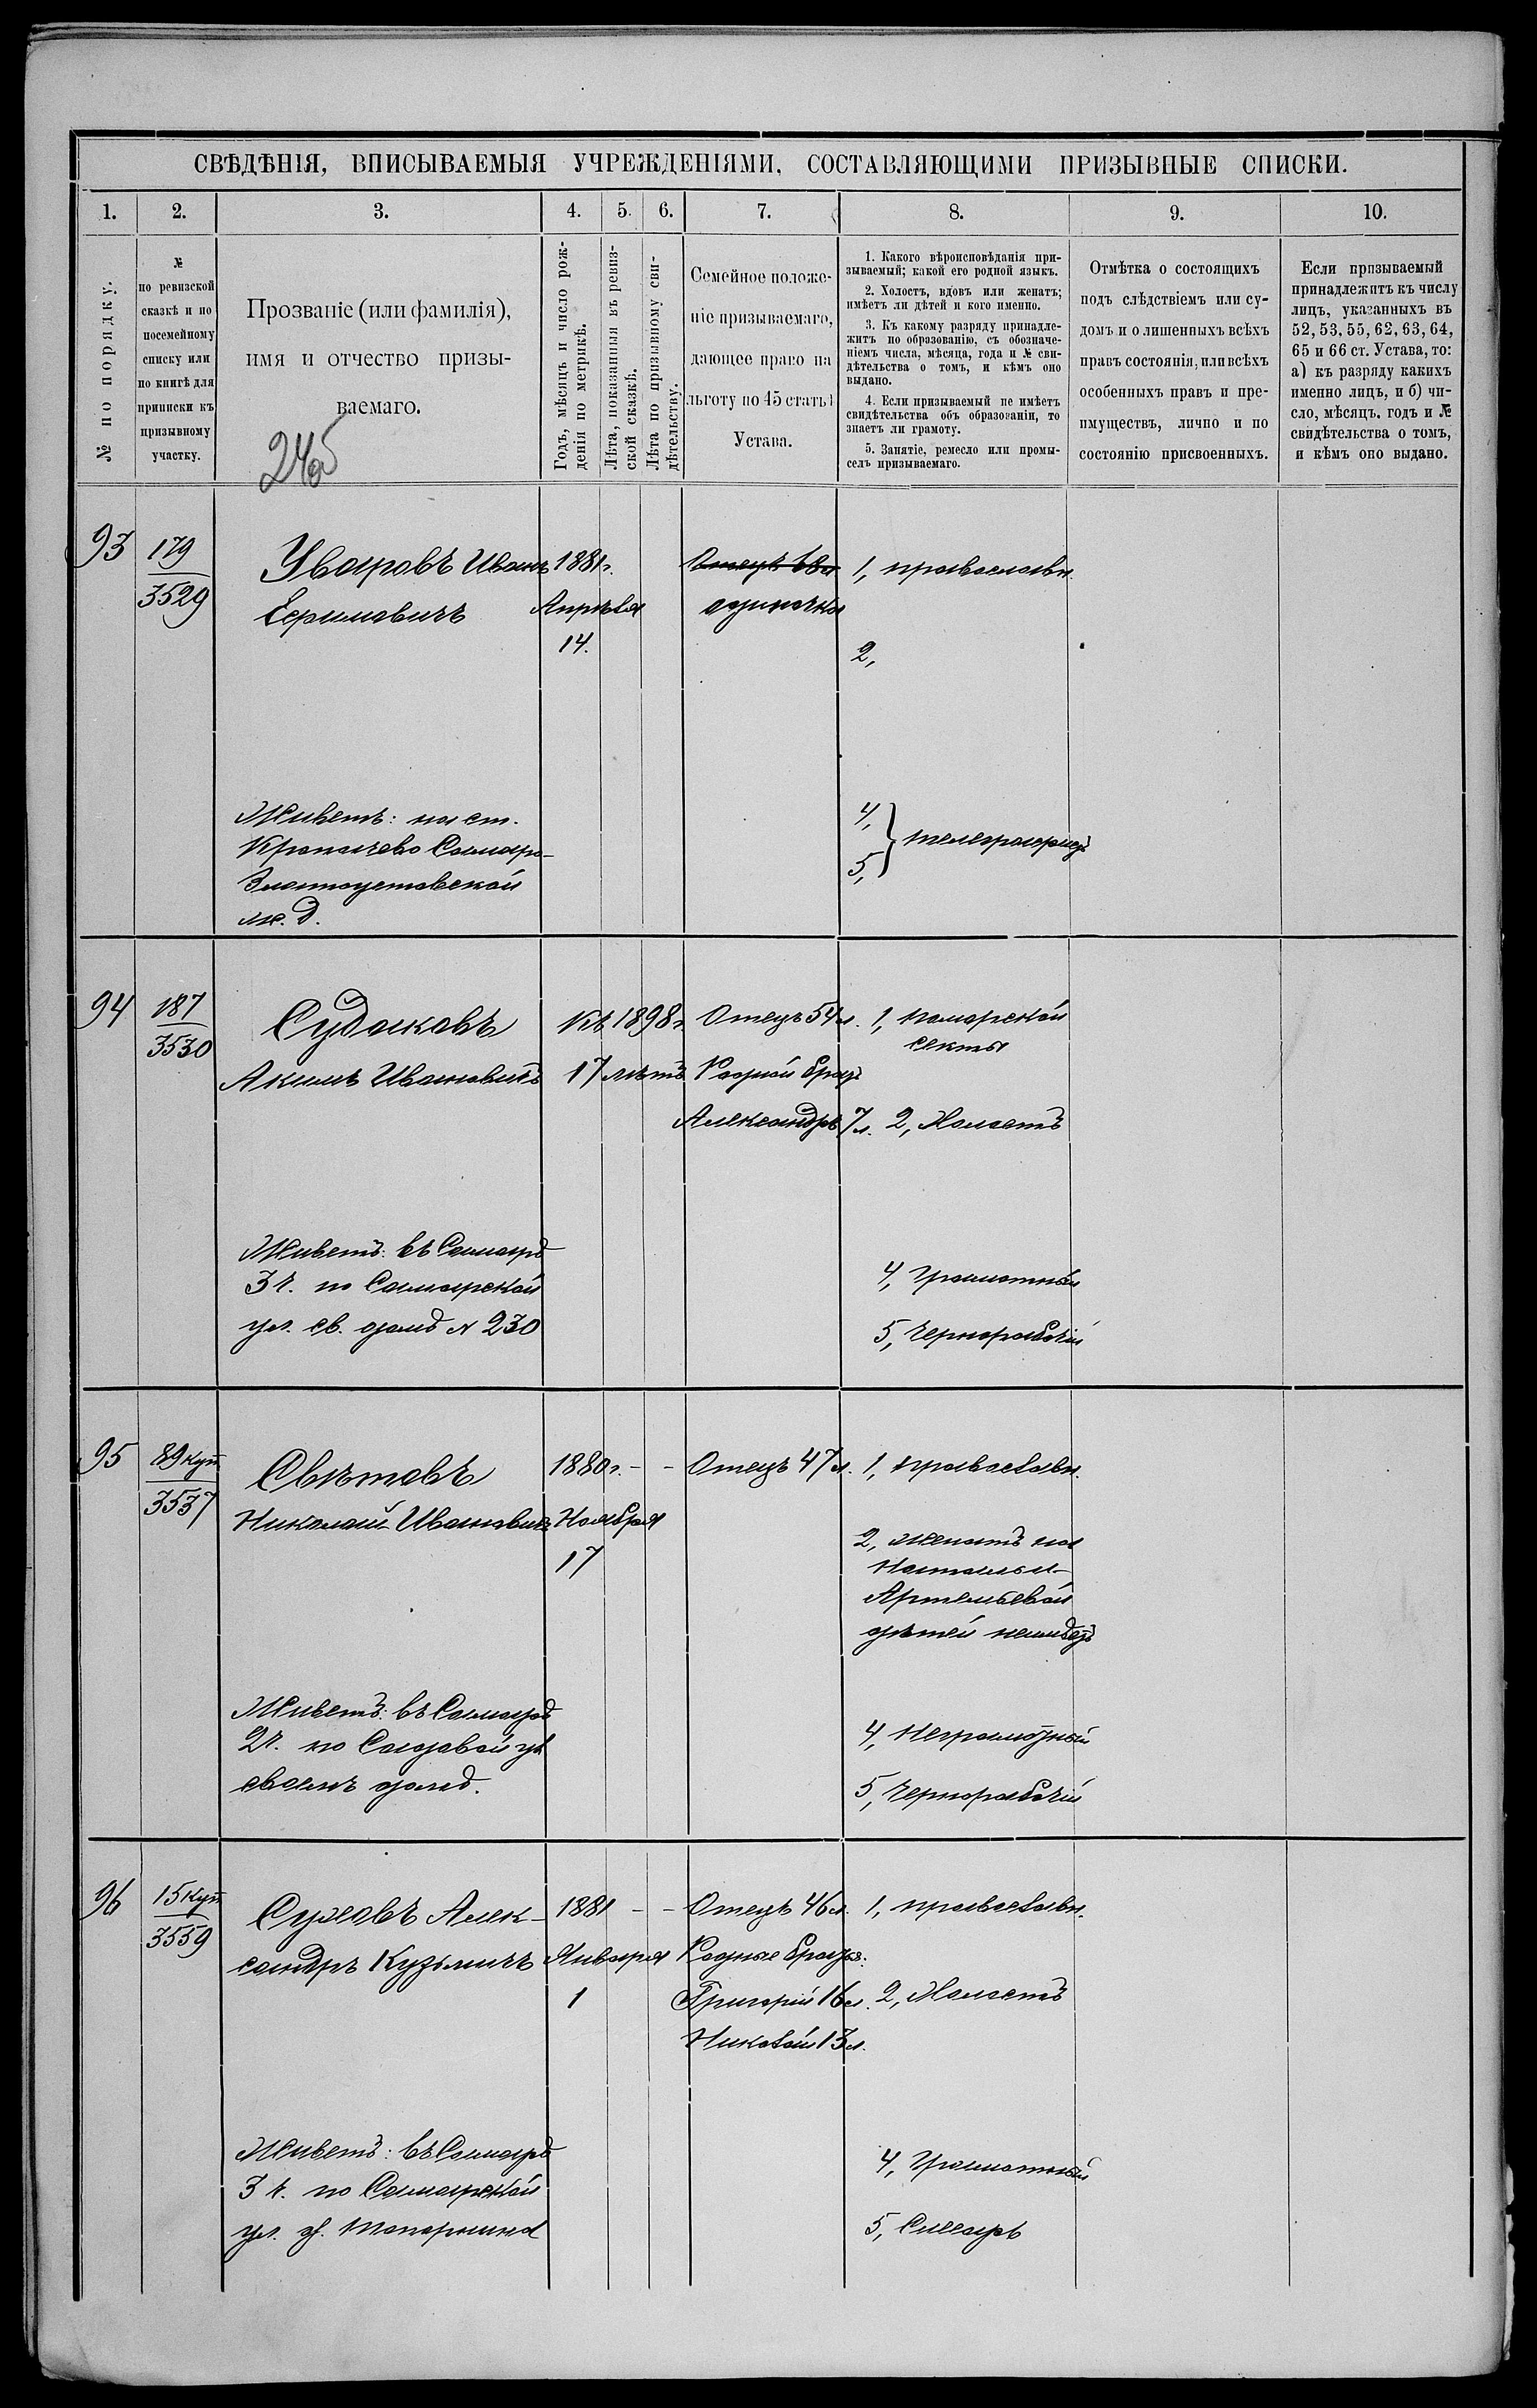 СВѢДѢНІЯ, ВПИСЫВАЕМЫЯ УЧРЕЖДЕНІЯМИ, СОСТАВЛЯЮЩИМИ ПРИЗЫВНЫЕ СПИСКИ.
1. 2. 3. 4. 5. 6. 7. 8. 9. 10.
№ по порядку.
№
по ревизской
сказкѣ и по
посемейному
списку или
по книгѣ для
приписки къ
призывному
участку.
Прозваніе (или фамилія),
имя и отчество призы-
ваемаго.
Годъ, мѣсяцъ и число рож-
денія по метрикѣ.
Лѣта, показанныя въ ревиз-
ской сказкѣ.
Лѣта по призывному сви-
дѣтельству.
Семейное положе-
ніе призываемаго,
дающее право на
льготу по 45 статьѣ
Устава.
1. Какого вѣроисповѣданія при-
зываемый; какой его родной языкъ.
2. Холостъ, вдовъ или женатъ;
имѣетъ ли дѣтей и кого именно.
3. Къ какому разряду принадле-
житъ по образованію, съ обозначе-
ніемъ числа, мѣсяца, года и № сви-
дѣтельства о томъ, и кѣмъ оно
выдано.
4. Если призываемый не имѣетъ
свидѣтельства объ образованіи, то
знаетъ ли грамоту.
5. Занятіе, ремесло или промы-
селъ призываемаго.
Отмѣтка о состоящихъ
подъ слѣдствіемъ или су-
домъ и о лишенныхъ всѣхъ
правъ состоянія, или всѣхъ
особенныхъ правъ и пре-
имуществъ, лично и по
состоянію присвоенныхъ.
Если призываемый
принадлежитъ къ числу
лицъ, указанныхъ въ
52, 53, 55, 62, 63, 64,
65 и 66 ст. Устава, то:
а) къ разряду какихъ
именно лицъ, и б) чи-
сло, мѣсяцъ, годъ и №
свидѣтельства о томъ,
и кѣмъ оно выдано.
93
179
3529
Уваровъ Иванъ
Ефимовичъ
1881 г.
Апрѣля
14.
Отецъ 68 л
одиночка
1, православн.
2,
Живетъ: на ст.
Кропачево Самаро-
Златоустовской
ж. д.
4,
5,
телеграфистъ
94
187
3530
Судаковъ
Акимъ Ивановичъ
Къ 1898 г
17 лѣтъ
Отецъ 54 л.
Родной братъ
Александръ 7 л.
1, поморской
секты
2, Холостъ
Живетъ: въ Самарѣ
3 ч. по Самарской
ул. св. домѣ № 230
4, Грамотный
5, Чернорабочій
95
89 куп
3537
Свѣтовъ
Николай Ивановичъ
1880 г. - -
Ноября
17
Отецъ 47 л.
1, православн.
2, женатъ на
Натальи
Артемьевой
дѣтей неимѣетъ
Живетъ: въ Самарѣ
2 ч. по Садовой ул
своемъ домѣ.
4, Неграмотный
5, Чернорабочій
96
15 куп
3559
Сурковъ Алек-
сандръ Кузьмичъ
1881 - -
Января
1
Отецъ 46 л.
Родные братья:
Григорій 16 л.
Николай 13 л.
1, православн.
2, Холостъ
Живетъ: въ Самарѣ
3 ч. по Самарской
ул. д. Топоркина
4, Грамотный
5, Слесарь